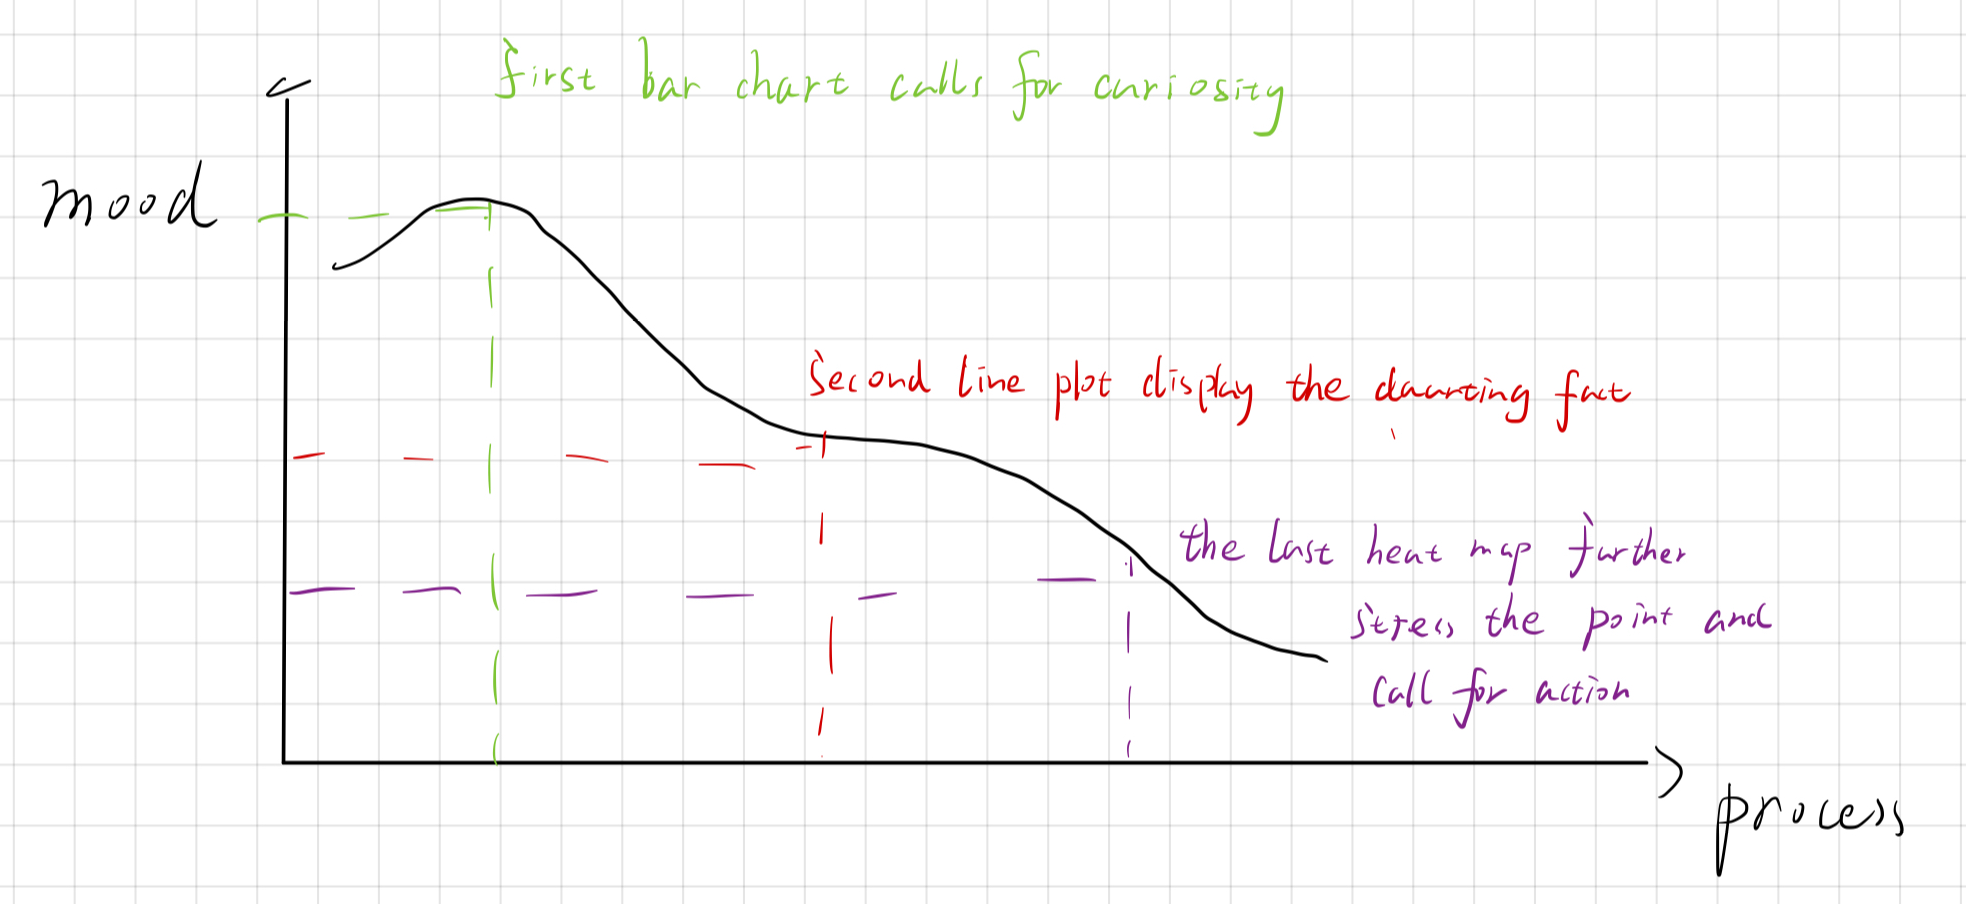 first bar chart calls for curiosity
mood
Second line plot display the daunting fact
the last heat map further
stress the point and
call for action
process